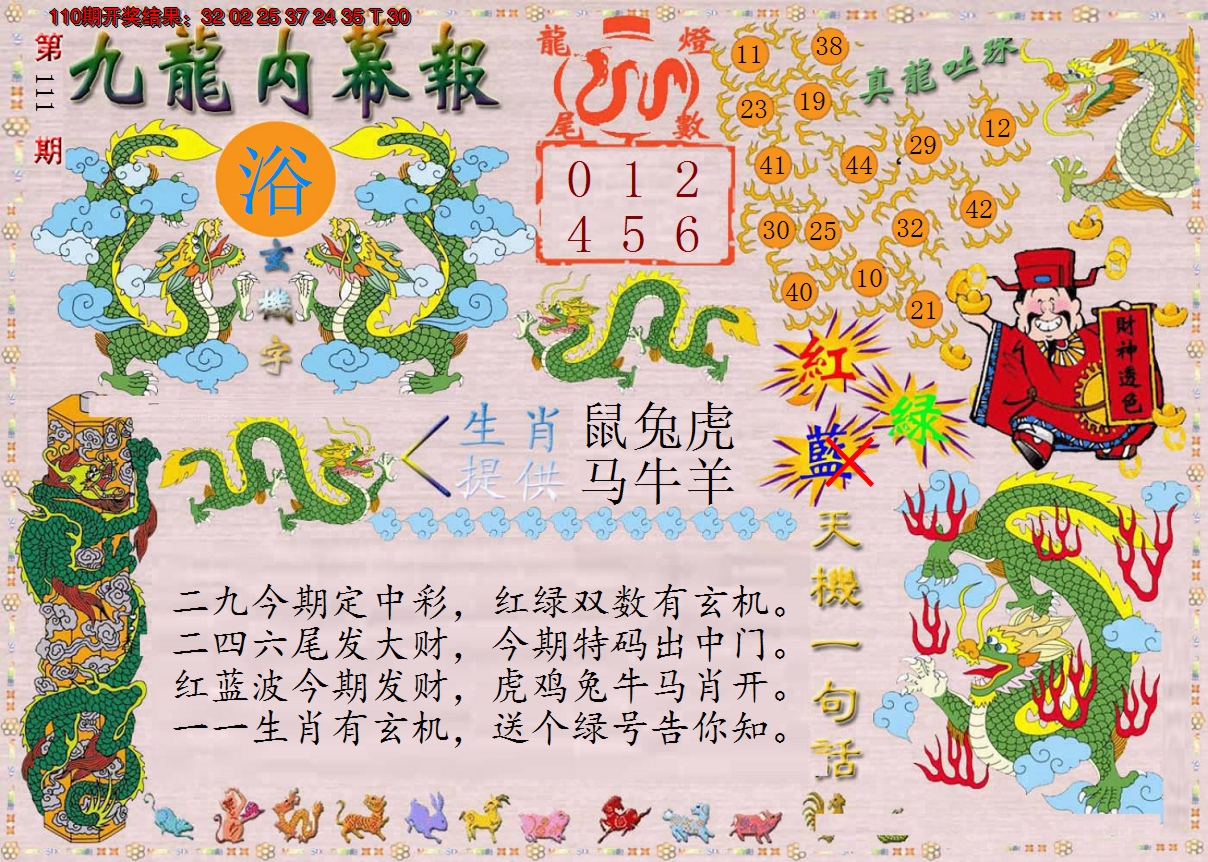 110期开奖结果：32 02 25 37 24 35 T 30
第111期
九龍内幕報
浴
玄機字
龍燈
尾數
0 1 2
4 5 6
真龍吐珠
11 38
23 19
41 44 29 12
30 25 32 42
40 10 21
紅
绿
藍
財神透色
生肖提供
鼠兔虎
马牛羊
天機一句话
二九今期定中彩，红绿双数有玄机。
二四六尾发大财，今期特码出中门。
红蓝波今期发财，虎鸡兔牛马肖开。
一一生肖有玄机，送个绿号告你知。